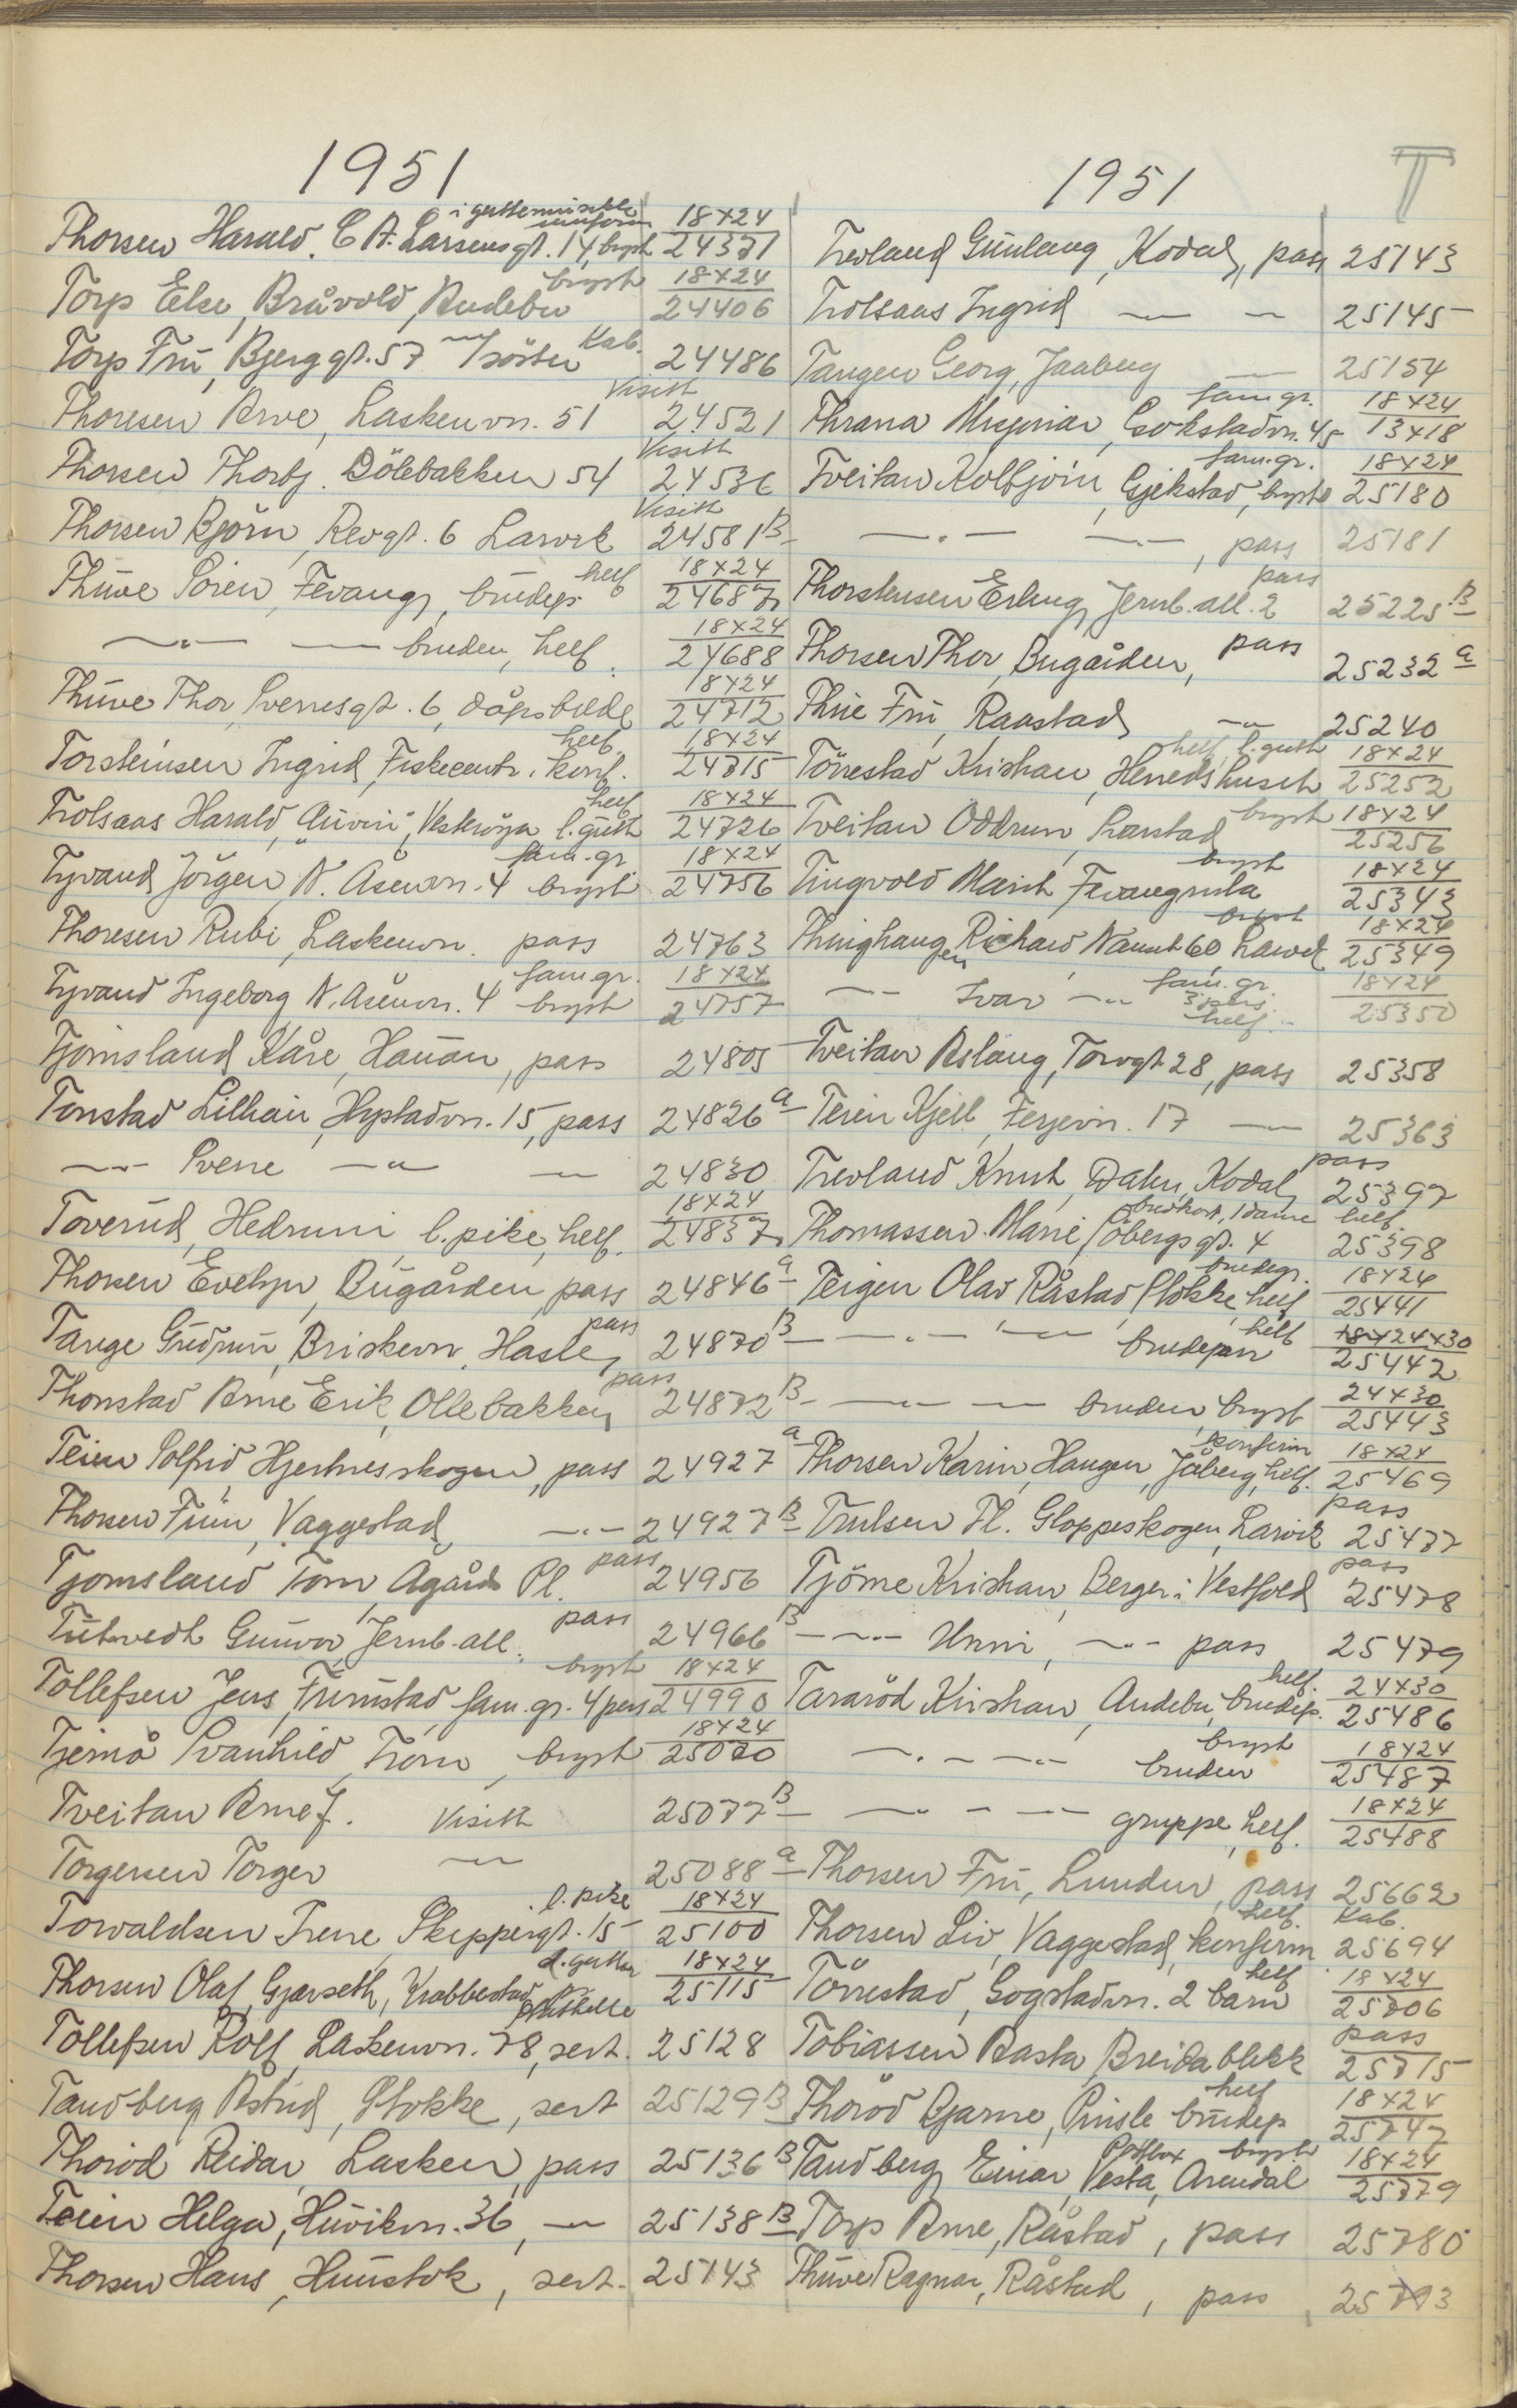 T
1951
Thorsen Harald, C A. Larsensgt. 14, bryst i guttemusikk uniform 18x24 24371
Torp Else, Bråvold, Andebu bryst 18x24 24406
Torp Fru, Bjerggt. 57 m/søster Kab. 24486
Thoresen Arve, Laskenvn. 51 Visitt 24521
Thorsen Thorbj. Bölebakken 54 Visitt 24536
Thorsen Björn, Revgt. 6 Larvik Visitt 24581 B
Thuve Sören, Fevang, brudep. helf 18x24 24687
—"— — bruden, helf. 18x24 24688
Thuve Thor, Sverresgt. 6, dåpsbilde 18x24 24712
Torsteinsen Ingrid, Fiskecentr. konf. helf. 18x24 24715
Trolsaas Harald, Vesteröya l. gutt helf 18x24 24726
Tyvand Jörgen, N. Åsenvn. 4 bryst fam. gr. 18x24 24756
Thoresen Rubi, Laskenvn. pass 24763
Tyvand Ingeborg N. Åsenvn. 4 bryst fam gr. 18x24 24757
Tjomsland Kåre, Hauan, pass 24805
Tonstad Lillian, Hystadvn. 15, pass 24826 a
—"— Sverre —"— — 24830
Toverud, Hedrum l. pike, helf. 18x24 24837
Thorsen Evelyn, Bugården, pass 24846 a
Tange Gudrun, Briskevn, Hasle, pass 24870 B
Thonstad Arne Erik, Ollebakken pass 24872 B
Teien Solfrid, Hjertnesskogen, pass 24927 a
Thorsen Finn, Vaggestad, —"— 24927 B
Tjomsland Tom, Ågårds Pl. pass 24956
Tutvedt Gunvor, Jernb. all. pass 24966 B
Tollefsen Jens, Furustad, fam. gr. 4 pers bryst 18x24 24990
Tjernå Svanhild, Trom, bryst 18x24 25020
Tveitan Arne J. Visitt 25077 B
Torgersen Torger — 25088 a
Torvaldsen Irene, Skippergt. 15 l. pike 18x24 25100
Thorsen Olaf, Gjarseth, Krabbestad 18x24 25115
Tollefsen Rolf, Laskenvn. 78, sert. 25128
Tandberg Astrid, Stokke, sert 25129 B
Thoröd Reidar, Lasken, pass 25136 B
Teien Helga, Huvikvn. 36, — 25138 B
Thorsen Hans, Hunstok, sert. 25143
1951
Trevland Gunlaug, Kodal, pass 25143
Trolsaas Ingrid — — 25145
Tangen Georg, Jaaberg — 25154
Thrana Gokstadvn. 45 fam gr. 18x24 13x18
Tveitan Kolbjörn, Gjekstad, bryst fam. gr. 18x24 25180
—"— —"—, pass 25181
Thorstensen Erling, Jernb. all. 2 pass 25225 B
Thorsen Thor, Bugården, pass 25232 a
Thue Fru, Raastad —"— 25240
Törrestad Kristian, Herredshuset helf, l. gutt 18x24 25252
Tveitan Oddrun, Raastad bryst 18x24 25256
Tingvold Marit, Fevangrunla bryst 18x24 25343
Thinghaugen Richard Nanset 60 Larvik bryst 18x24 25349
—"— Ivar —"— fam. gr. 3 pers. helf. 18x24 25350
Tveitan Aslaug, Torvgt. 28, pass 25358
Teien Kjell, Ferjevn. 17 — 25363
Trevland Knut, Dalen, Kodal, pass 25397
Thomassen Marie, Söbergsgt. 4 1 dame helf. 25398
Teigen Olav Råstad, Stokke, helf brudegr. 18x24 25441
—"— —"— brudepar helf 18x24x30 25442
—"— — bruden, bryst 24x30 25443
Thorsen Karin, Haugen, Jåberg, helf. konfirm 18x24 25469
Trulsen Th. Gloppeskogen, Larvik pass 25477
Tjöme Kristian, Berger i Vestfold pass 25478
—"— Unni, —"— pass 25479
Tararöd Kristian, Andebu, brudep. helf. 24x30 25486
—"— —"— bruden bryst 18x24 25487
—"— — gruppe, helf. 18x24 25488
Thorsen Fru, Lunden, pass 25662
Thorsen Liv, Vaggestad, konfirm helf. Kab. 25694
Törrestad, Gogstadvn. 2 barn helf 18x24 25706
Tobiassen Basta, Breidablikk pass 25715
Thoröd Bjarne, Prinsle brudep helf 18x24 25747
Tandberg Einar, Vesta, Arendal Postbox bryst 18x24 25779
Torp Arne, Råstad, pass 25780
Thuve Ragnar, Råstad, pass 25793